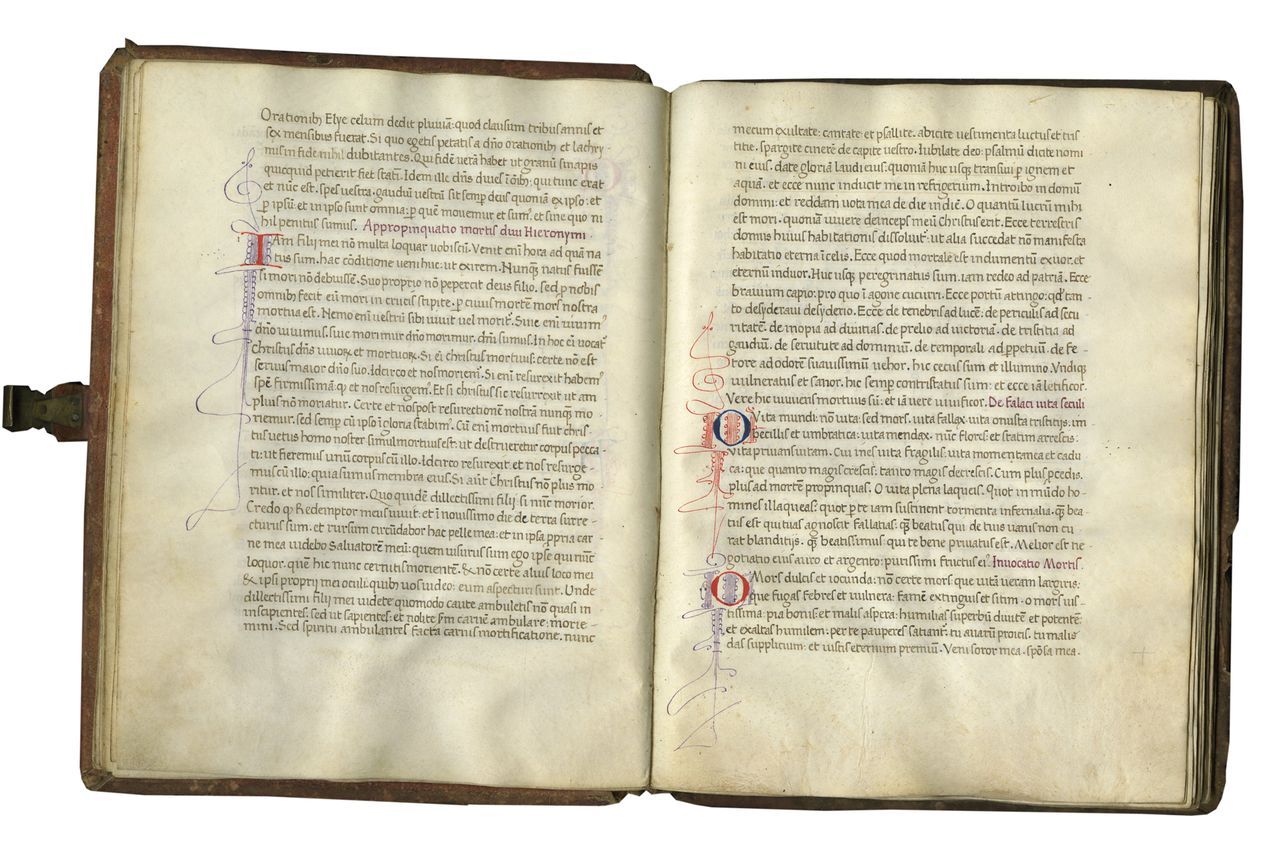 Orationibꝫ Elye celum dedit pluuiā: quod clausum tribus annis et
sex mensibus fuerat. Si quo egetis petatis a dn̄o orationibꝫ et lachry-
mis in fide nihil dubitantes. Qui fidē uerā habet ut granū sinapis
quicquid petierit fiet statī. Idem ille dn̄s diues ī oībꝫ: qui tunc erat
et nūc est. spes uestra. gaudiū uestrū sit semꝑ deus quoniā ex ipso: et
ꝑ ipsū: et in ipso sunt omnia: ꝑ quē mouemur et sumꝰ. et sine quo ni
hil penitus sumus. Appropinquatio mortis diui Hieronymi.
IAm filij mei nō multa loquar uobiscū. Venit eni hora ad quā na
tus sum. hac cōditione ueni huc: ut exirem. Nunqꝫ natus fuissē
si mori nō debuissē. Suo proprio nō pepercit deus filio. sed ꝓ nobis
omnibꝫ fecit eū mori in crucis stipite. ꝑ cuius mortē mors nostra
mortua est. Nemo eni uestrū sibi uiuit uel moritꝰ. Siue eni uiuimꝰ
dn̄o uiuimus. siue morimur dn̄o morimur. dn̄i sumus. In hoc ei uocatꝰ
Christus dn̄s uiuoꝝ et mortuoꝝ. Si ei christus mortuus: certe nō est
seruus maior dn̄o suo. Idcirco et nos moriemꝰ. Si eni resurexit habemꝰ
spē firmissimā: ꝙ et nos resurgemꝰ. Et si christus sic resurexit ut am
plius nō moriatur. Certe et nos post resurectionē nostrā nunqꝫ mo-
riemur. sed semꝑ cū ipso ī gloria stabimꝰ. Cū eni mortuus fuit chris-
tus uetus homo noster simul mortuus est. ut destrueretur corpus pecca-
ti: ut fieremus unū corpus cū illo. Idcirco resurexit. et nos resurge-
mus cū illo: quia sumus membra eius. Si aūt Christus nō plus mo
ritur. et nos similiter. Quo quidē dillectissimi filij si nūc morior.
Credo ꝙ Redemptor meus uiuit: et ī nouissimo die de terra surre-
cturus sum. et rursum circūdabor hac pelle mea: et in ipsa ꝓpria car-
ne mea uidebo Saluatorē meū: quem uisurus sum ego ipse qui nūc
loquor. quem hic nunc cernitis morientē. & nō certe alius loco mei
& ipsi proprij mei oculi: quibꝫ uos uideo: eum aspecturi sunt. Unde
dillectissimi filij mei uidete quomodo caute ambuletis nō quasi in
insipientes. sed ut sapientes: et nolite ꝓm carnē ambulare: morie-
mini. Sed spiritu ambulantes facta carnis mortificatione. nunc
mecum exultate: cantate: et psallite. abicite uestimenta luctus et tris
titie. spargite cinerē de capite uestro. Iubilate deo: psalmū dicite nomi
ni eius. date gloriā laudi eius. quoniā huc usqꝫ transiui ꝑ ignem et
aquā. et ecce nunc inducit me in refrigerium. Introibo in domū
domini: et reddam uota mea de die in diē. O quantū lucrū mihi
est mori. quoniā uiuere deinceps meū Christus erit. Ecce terrestris
domus huius habitationis dissoluit: ut alia succedat nō manifesta
habitatio eterna ī celis. Ecce quod mortale est indumentū exuor. et
eternū induor. Huc usqꝫ peregrinatus sum. iam redeo ad patriā. Ecce
brauium capio: pro quo ī agone cucurri. Ecce portū attingo: qd' tan-
to desyderaui desyderio. Ecce de tenebris ad lucē: de periculis ad secu
ritatē. de inopia ad diuitias. de prelio ad uictoria. de tristitia ad
gaudiū. de seruitute ad dominiū. de temporali ad ꝑpetuū. de fe-
tore ad odorē suauissimū uehor. hic cecus sum et illumino. Vndiqꝫ
uulneratus et sanor. hic semꝑ contristatus sum: et ecce iā letificor.
Vere hic uiuens mortuus sū: et iā uere uiuificor. De Falaci uita seculi
O Vita mundi: nō uita: sed mors. uita fallax. uita onusta tristitijs. im
pecillis et umbratica: uita mendax. nūc flores: et statim arrescis.
Vita priuans uitam. Cui ines uita fragilis. uita momentanea et cadu
ca: que quanto magis crescis: tanto magis decrescis. Cum plus ꝓcedis.
plus ad mortē propinquas. O uita plena laqueis. Quot in mūdo ho-
mines illaqueas: quot ꝑ te iam sustinent tormenta infernalia. qꝫ bea-
tus est qui tuas agnoscit fallatias: qꝫ beatus qui de tuis uanis non cu-
rat blanditijs. qꝫ beatissimus qui te bene priuatus est. Melior est ne-
gotiatio eius auro et argento: purissimi fructus eiꝰ. Inuocatio Mortis.
O Mors dulcis et iocunda: nō certe mors que uitā ueram largiris:
que fugas febres et uulnera: famē extinguis et sitim. o mors ius-
tissima: pia bonis: et malis aspera: humilias superbū diuitē et potentē:
et exaltas humilem: per te pauperes satiantꝰ: tu auarū proicis. tu malis
das supplicium: et iustis eternum premiū. Veni soror mea. spōsa mea.